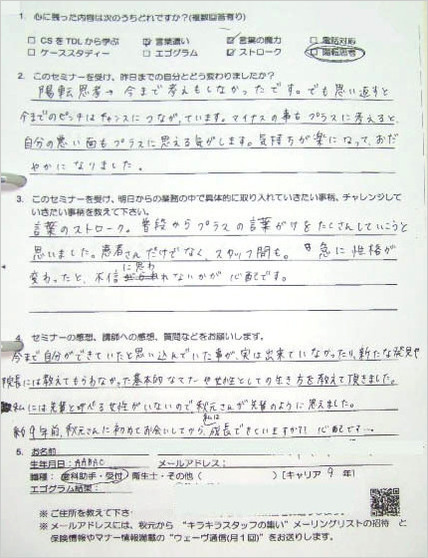 1. 心に残った内容は次のうちどれですか?(複数回答有り)
□ CSをTDLから学ぶ ☑ 言葉遣い ☑ 言葉の魔力 □ 電話対応
□ ケーススタディー □ エゴグラム ☑ ストローク □ 陽転思考
2. このセミナーを受け、昨日までの自分とどう変わりましたか?
陽転思考→今まで考えもしなかったです。でも思い返すと
今までのピンチはチャンスにつながっています。マイナスの事もプラスに考えると、
自分の悪い面もプラスに思える気がします。気持ちが楽になって、おだ
やかになりました。
3. このセミナーを受け、明日からの業務の中で具体的に取り入れていきたい事柄、チャレンジして
いきたい事柄を教えて下さい。
言葉のストローク。普段からプラスの言葉がけをたくさんしていこうと
思いました。患者さんだけでなく、スタッフ間も。急に性格が
変わったと、不信に思われないかが心配です。
4. セミナーの感想、講師への感想、質問などをお願いします。
今まで自分ができていたと思い込んでいた事が、実は出来ていなかったり、新たな発見や
院長には教えてもらわなかった基本的なマナーや女性としての生き方を教えて頂きました。
私には先輩と呼べる女性がいないので秋元さんが先輩のように思えました。
約9年前、秋元さんに初めてお会いしてから、私は成長できていますか?! 心配です…
5. お名前
生年月日 AABAC メールアドレス:
職種:歯科助手・受付 衛生士・その他( )[キャリア 9 年]
エゴグラム結果:
※ ご住所を教えて下さい
※ メールアドレスには、秋元から “キラキラスタッフの集い” メーリングリストの招待 と
保険情報やマナー情報満載の “ウェーヴ通信(月1回)” をお送りします。